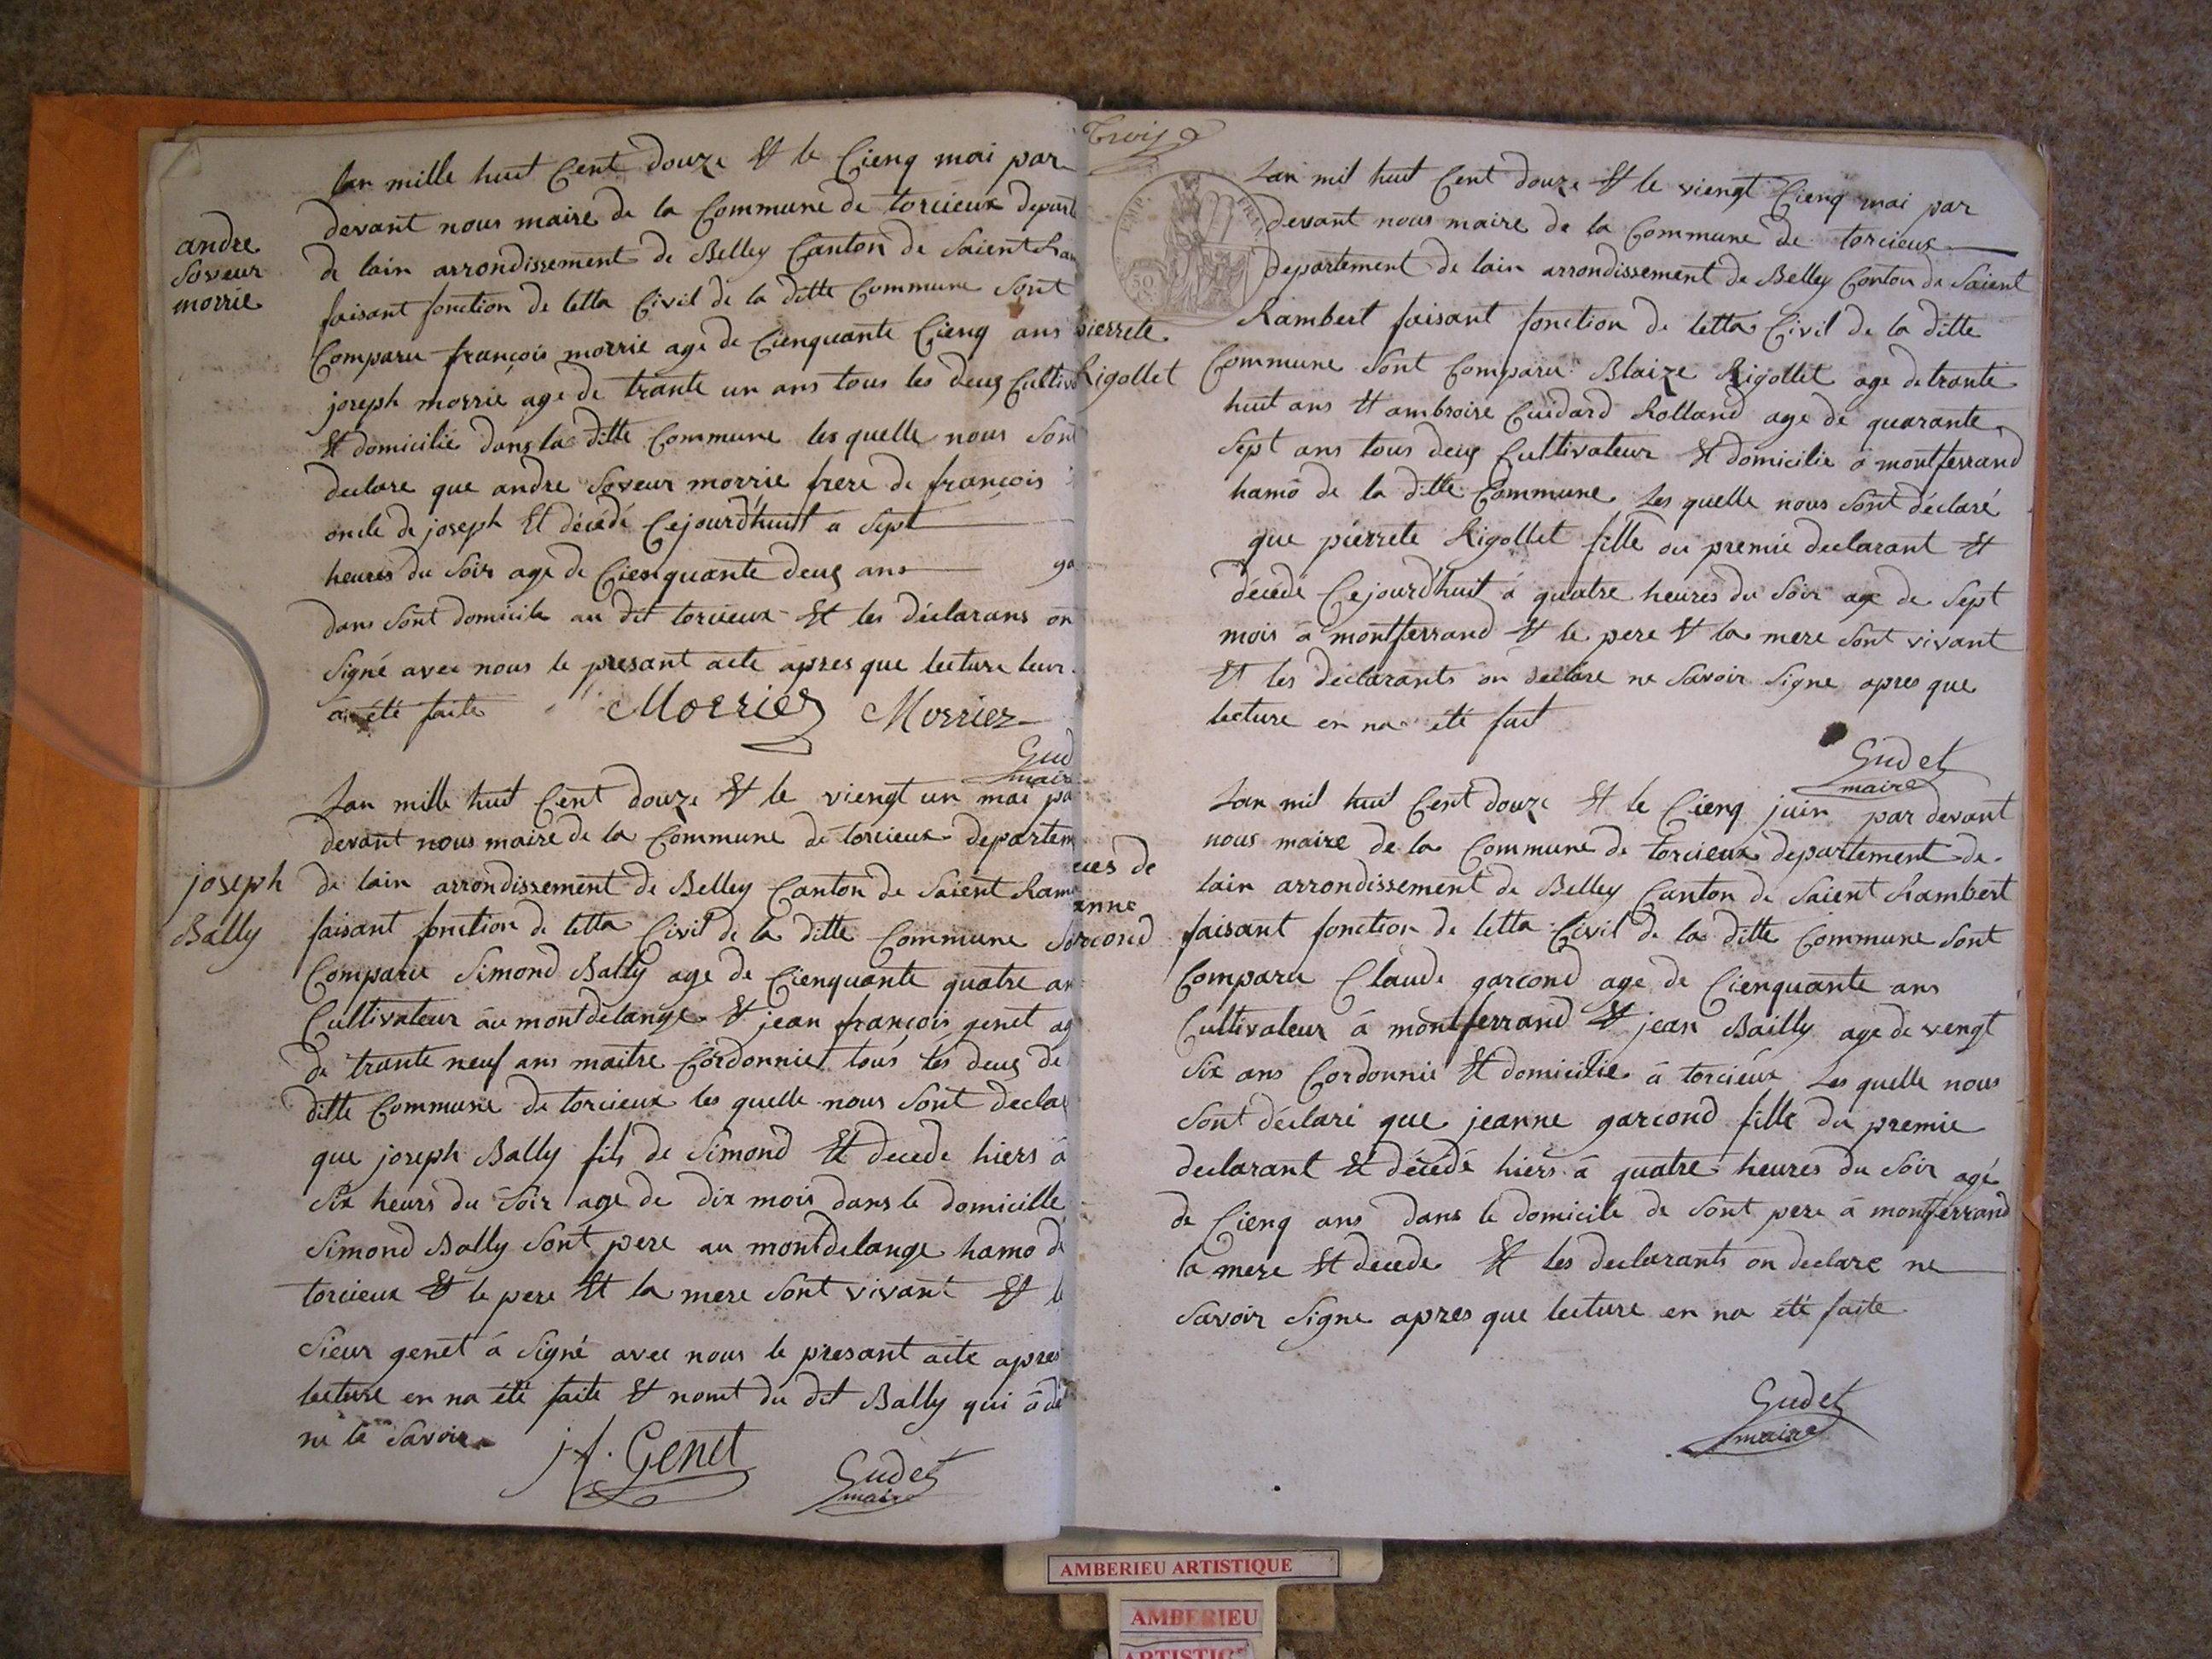 andre
Soveur
morrie
Lan mille huit Cent douze Et le Cienq mai par
devant nous maire de la Commune de torcieux depart
de lain arrondissement de Belley Canton de Saient Ram
faisant fonction de letta Civil de la ditte Commune Sont
Comparu françois morrie age de Cienquante Cienq ans
joseph morrie age de trante un ans tous les deux Cultiv
Et domicilié dans la ditte Commune les quelle nous Sont
declare que andre Soveur morrie frere de françois
oncle de joseph Et décédé Cejourdhuit a Sept
heures du Soir age de Cienquante deux ans
dans Sont domicile au dit torcieux Et les déclarans on
Signé avec nous le presant acte apres que lecture leur
a été faite Morriez Morriez
Gud
maire
joseph
Bally
Lan mille huit Cent douze Et le viengt un mai pa
devant nous maire de la Commune de torcieux departem
de lain arrondissement de Belley Canton de Saient Ram
faisant fonction de letta Civil de la ditte Commune So
Comparu Simond Bally age de Cienquante quatre an
Cultivateur au montdelange Et jean françois genet ag
de trante neuf ans maitre Cordonnie tous les deux de
ditte Commune de torcieux les quelle nous Sont decla
que joseph Bally fils de Simond Et decede hiers à
Six heurs du Soir age de dix mois dans le domicille
Simond Bally Sont pere au montdelange hamo d
torcieux Et le pere Et la mere Sont vivant Et l
Sieur genet à Signé avec nous le presant acte apres
lecture en na été faite Et nomt du dit Bally qui à di
ne le Savoir
jf. Genet
Gudet
maire
Trois
EMP. FR.
50
pierrete
Rigollet
Lan mil huit Cent douze Et le viengt Cienq mai par
devant nous maire de la Commune de torcieux
departement de lain arrondissement de Belley Canton de Saient
Rambert faisant fonction de letta Civil de la ditte
Commune Sont Comparu Blaize Rigollet age de trante
huit ans Et ambroise Cuidard Rolland age de quarante
Sept ans tous deux Cultivateur Et domicilie à montferrand
hamo de la ditte Commune les quelle nous Sont déclaré
que pierrete Rigollet fille du premie declarant Et
décédé Cejourdhuit à quatre heures du Soir age de Sept
mois à montferrand Et le pere Et la mere Sont vivant
Et les déclarants on declare ne Savoir Signe apres que
lecture en na été fait
Gudet
maire
ues de
anne
arcond
Lan mil huit Cent douze Et le Cienq juin par devant
nous maire de la Commune de torcieux departement de
lain arrondissement de Belley Canton de Saient Rambert
faisant fonction de letta Civil de la ditte Commune Sont
Comparu Claude garcond age de Cienquante ans
Cultivateur à montferrand Et jean Bailly age de vengt
Six ans Cordonnie Et domicilie à torcieux Les quelle nous
Sont déclaré que jeanne garcond fille du premie
declarant Et décédé hiers à quatre heures du Soir agé
de Cienq ans dans le domicile de Sont pere à montferrand
la mere Et decede Et les declarants on declare ne
Savoir Signe apres que lecture en na été faite
Gudet
maire
AMBERIEU ARTISTIQUE
AMBERIEU